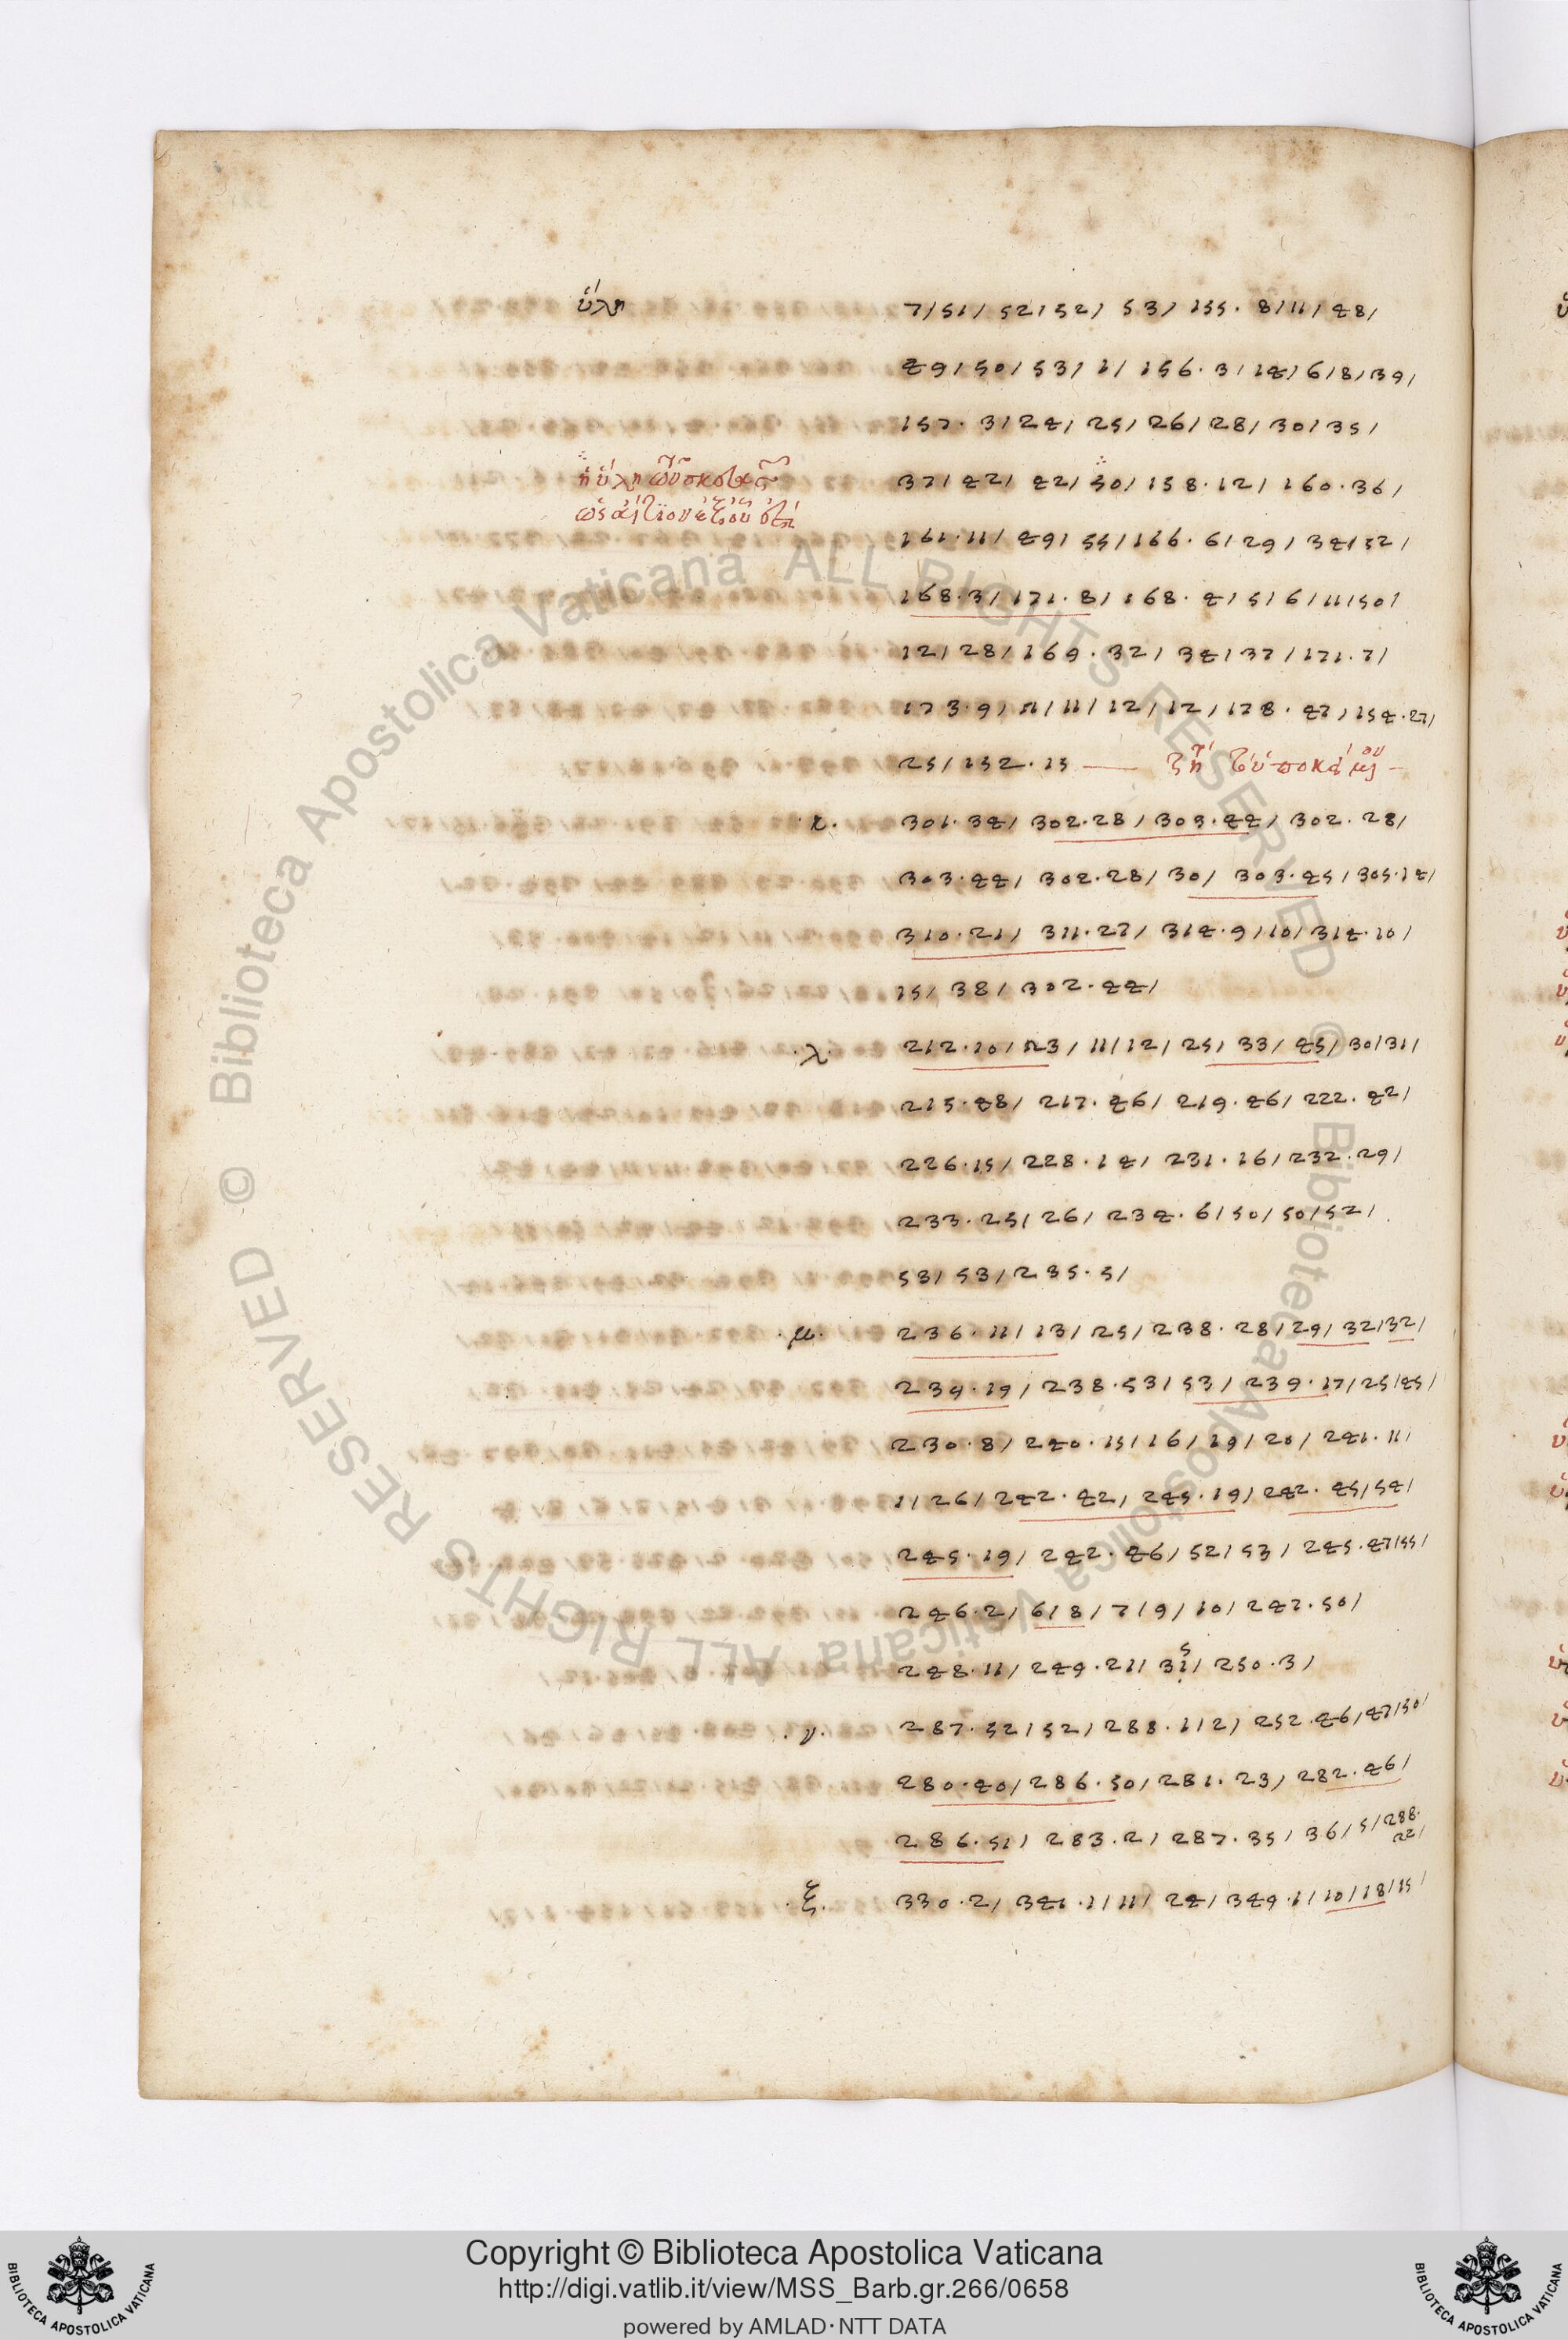 ὕλη 7/51/52/52/53/155.8/11/48/
49/50/53/1/156.3/14/6/8/39/
157.3/24/25/26/28/30/35/
37/42/42/50/158.12/160.36/
161.11/49/55/166.6/29/34/52/
168.3/171.8/168.4/5/6/11/50/
12/28/169.32/34/37/171.7/
173.9/11/11/12/12/178.47/154.27/
25/152.15
.κ. 301.34/302.28/303.44/302.28/
303.44/302.28/30/303.45/305.14/
310.21/311.27/314.9/10/314.10/
15/38/302.44/
.λ. 212.10/13/11/12/25/33/45/30/31/
215.48/217.46/219.46/222.42/
226.15/228.14/231.16/232.29/
233.25/26/234.6/50/50/52/
53/53/235.5/
.μ. 236.11/13/25/238.28/29/32/32/
239.19/238.53/53/239.17/25/45/
230.8/240.15/16/19/20/241.11/
1/26/242.42/245.19/242.45/54/
245.19/242.46/52/53/245.47/55/
246.2/6/8/7/9/10/247.50/
248.11/249.21/31/250.3/
.ν. 287.52/52/288.1/2/252.46/47/50/
280.40/286.50/281.23/282.46/
286.51/283.2/287.35/36/5/288.
22/
.ξ. 330.2/341.1/11/24/349.1/10/18/15/
© Biblioteca Apostolica Vaticana ALL RIGHTS RESERVED © Biblioteca Apostolica Vaticana ALL RIGHTS RESERVED
Copyright © Biblioteca Apostolica Vaticana
http://digi.vatlib.it/view/MSS_Barb.gr.266/0658
powered by AMLAD·NTT DATA
BIBLIOTECA APOSTOLICA VATICANA
BIBLIOTECA APOSTOLICA VATICANA